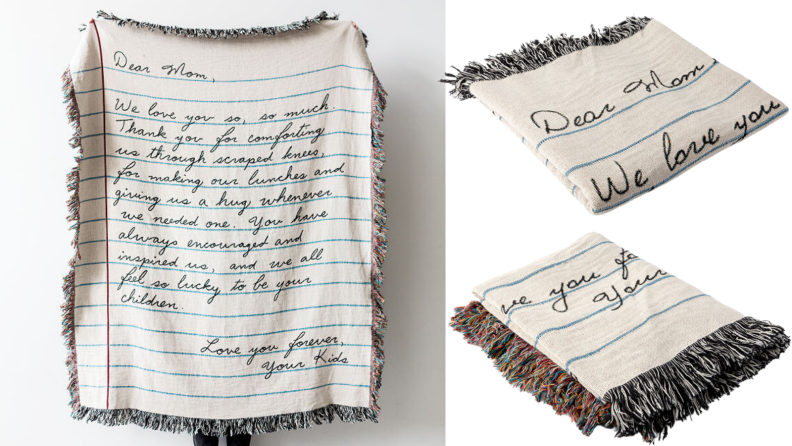 Dear Mom,
We love you so, so much
Thank you for comforting
us through scraped knees,
for making our lunches and
giving us a hug whenever
we needed one. You have
always encouraged and
inspired us, and we all
feel so lucky to be your
children.
Love you forever,
Your Kids
Dear Mom,
We love you
ve you fo
Your